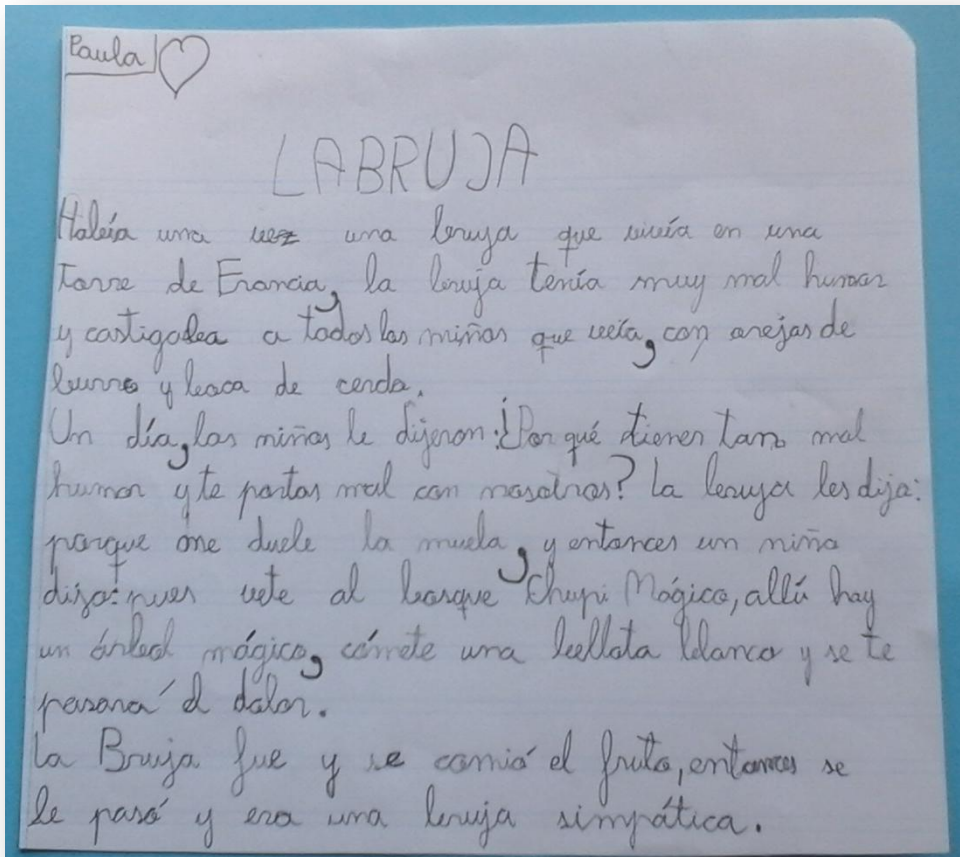 Paula
LA BRUJA
Había una vez una bruja que vivía en una
torre de Francia, la bruja tenía muy mal humor
y castigaba a todos los niños que veía, con orejas de
burro y boca de cerdo.
Un día, los niños le dijeron: ¿Por qué tienes tan mal
humor y te portas mal con nosotros? La bruja les dijo:
porque me duele la muela, y entonces un niño
dijo: pues vete al bosque Chupi Mágico, allí hay
un árbol mágico, cómete una bellota blanca y se te
pasará el dolor.
La Bruja fue y se comió el fruto, entonces se
le pasó y era una bruja simpática.